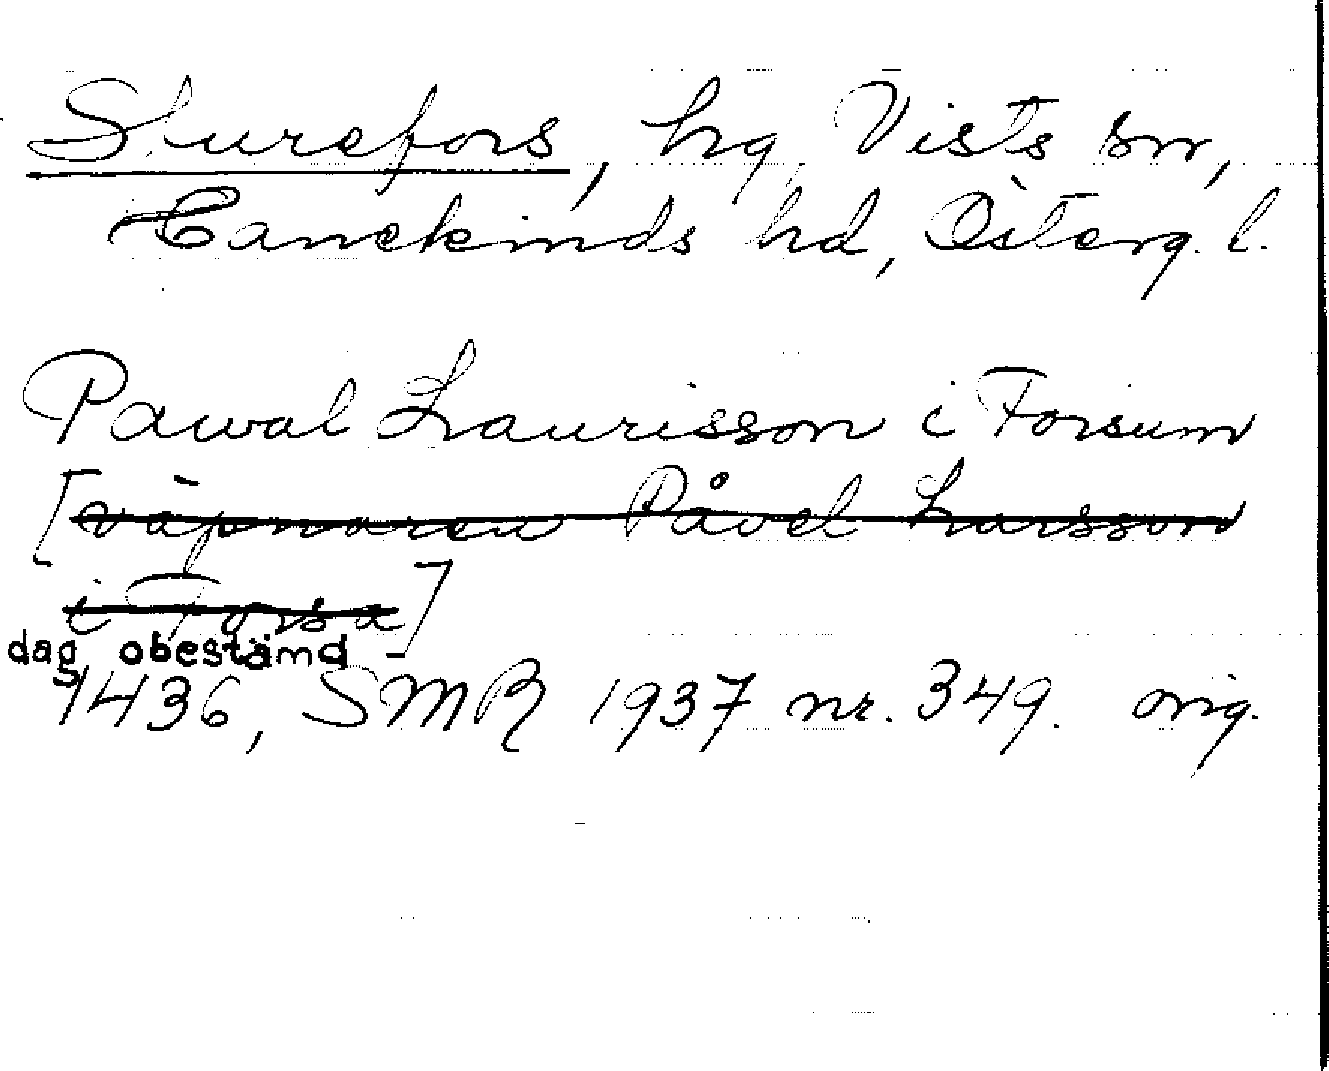 Sturefors, hg, Vists sn,
Hanekinds hd, Österg. l.
Pawal Laurisson i Forsum
[väpnaren Påvel Larsson
i Forsa]
dag obestämd -
1436, SMR 1937 nr. 349. orig.